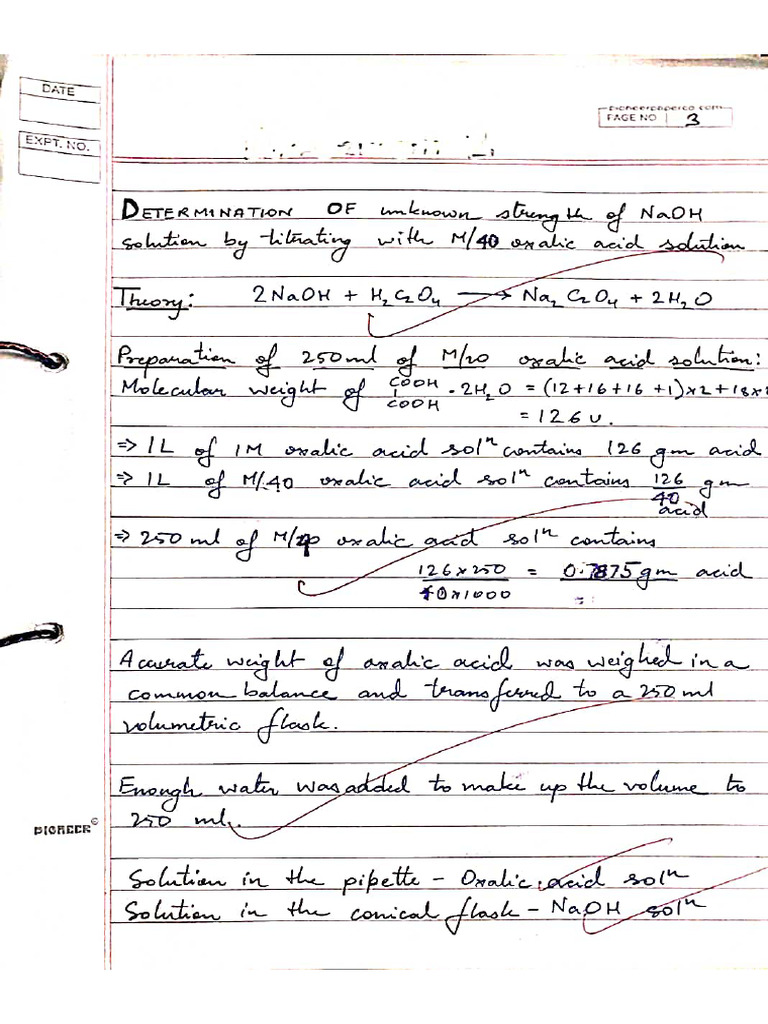 DATE
EXPT. NO.
pioneerpaperco.com
PAGE NO 3
DETERMINATION OF unknown strength of NaOH
solution by titrating with M/40 oxalic acid solution
Theory: 2NaOH + H₂C₂O₄ → Na₂C₂O₄ + 2H₂O
Preparation of 250ml of M/20 oxalic acid solution:
Molecular weight of COOH
COOH · 2H₂O = (12+16+16+1)×2+18×2
= 126u.
⇒ 1L of 1M oxalic acid solⁿ contains 126 gm acid
⇒ 1L of M/40 oxalic acid solⁿ contains 126/40 gm
acid
⇒ 250 ml of oxalic acid solⁿ contains
126×250/40×1000 = 0.7875gm acid
Accurate weight of oxalic acid was weighed in a
common balance and transferred to a 250ml
volumetric flask.
Enough water was added to make up the volume to
250 ml.
PIONEER©
Solution in the pipette – Oxalic acid solⁿ
Solution in the conical flask – NaOH solⁿ